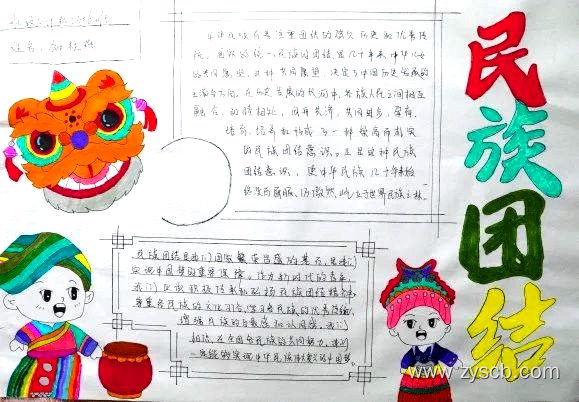 民族团结
姓名:
中华民族有着注重团结的强大历史和优秀传
统。国家的统一,民族的团结是几千年来中华儿女
的共同愿望。这种共同愿望,决定了中国历史发展的
主流与方向。在历史发展的长河中,各族人民之间相互
融合,和睦相处,同舟共济,共同进步,孕育、
培育、培养和形成了一种崇高而割突
的民族团结意识。正是这种民族
团结意识,使中华民族几千年来始
终没有屈服,仍傲然屹立于世界民族之林。
民族团结是我们国家繁荣昌盛的基石,是我们
实现中国梦的重要保障。作为新时代的青年,
我们应该积极传承和弘扬民族团结精神,
尊重各民族的文化习俗,学习各民族的优秀传统,
增强民族的自豪感和认同感。我们
相信,在全国各民族的共同努力,我们
一定能够实现中华民族伟大复兴的中国梦。
www.zyscb.com